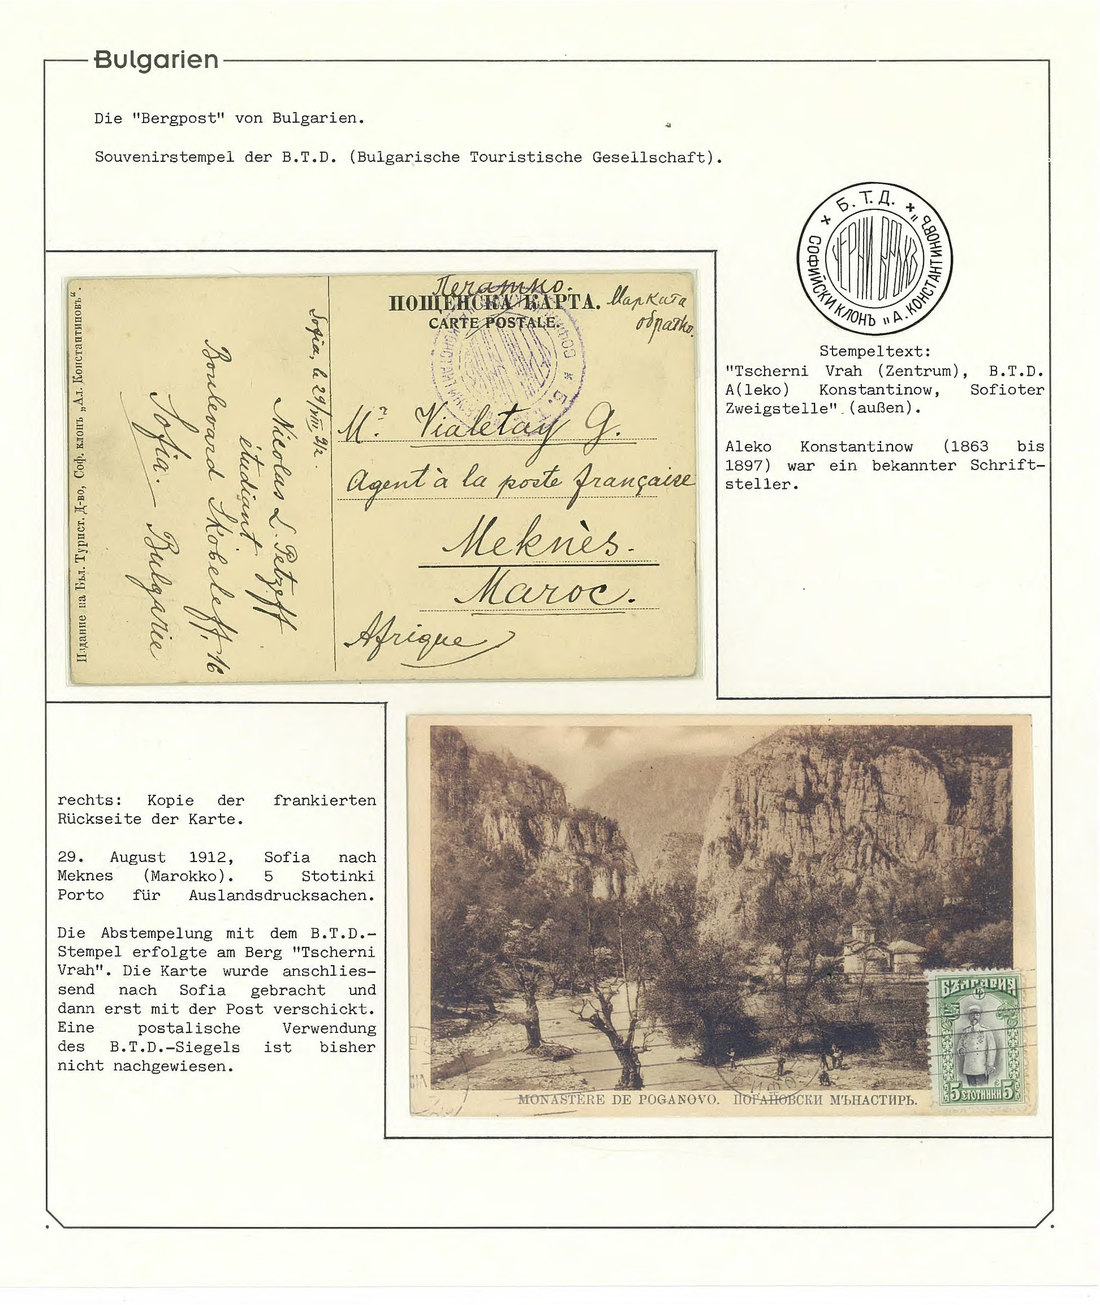 Bulgarien
Die "Bergpost" von Bulgarien.
Souvenirstempel der B.T.D. (Bulgarische Touristische Gesellschaft).
Б. Т. Д.
ЧЕРНИ ВРЪХЪ
СОФИЙСКИ КЛОНЪ „А. КОНСТАНТИНОВЪ"
Stempeltext:
"Tscherni Vrah (Zentrum), B.T.D.
A(leko) Konstantinow, Sofioter
Zweigstelle" (außen).
Aleko Konstantinow (1863 bis
1897) war ein bekannter Schrift-
steller.
Печатно.
ПОЩЕНСКА КАРТА.
CARTE POSTALE.
Марката
обратно.
Mr. Vialetay G.
Agent à la poste française
Meknès.
Maroc.
Afrique
Sofia, le 29/VIII 912.
Nicolas L. Petzeff
étudiant
Boulevard Skobeleff, 16
Sofia. — Bulgarie
Издание на Бъл. Турист. Д-во, Соф. клонъ „Ал. Константиновъ".
rechts: Kopie der frankierten
Rückseite der Karte.
29. August 1912, Sofia nach
Meknes (Marokko). 5 Stotinki
Porto für Auslandsdrucksachen.
Die Abstempelung mit dem B.T.D.-
Stempel erfolgte am Berg "Tscherni
Vrah". Die Karte wurde anschlies-
send nach Sofia gebracht und
dann erst mit der Post verschickt.
Eine postalische Verwendung
des B.T.D.-Siegels ist bisher
nicht nachgewiesen.
БЪЛГАРИЯ
5 СТОТИНКИ 5
MONASTÈRE DE POGANOVO. ПОГАНОВСКИ МЪНАСТИРЬ.